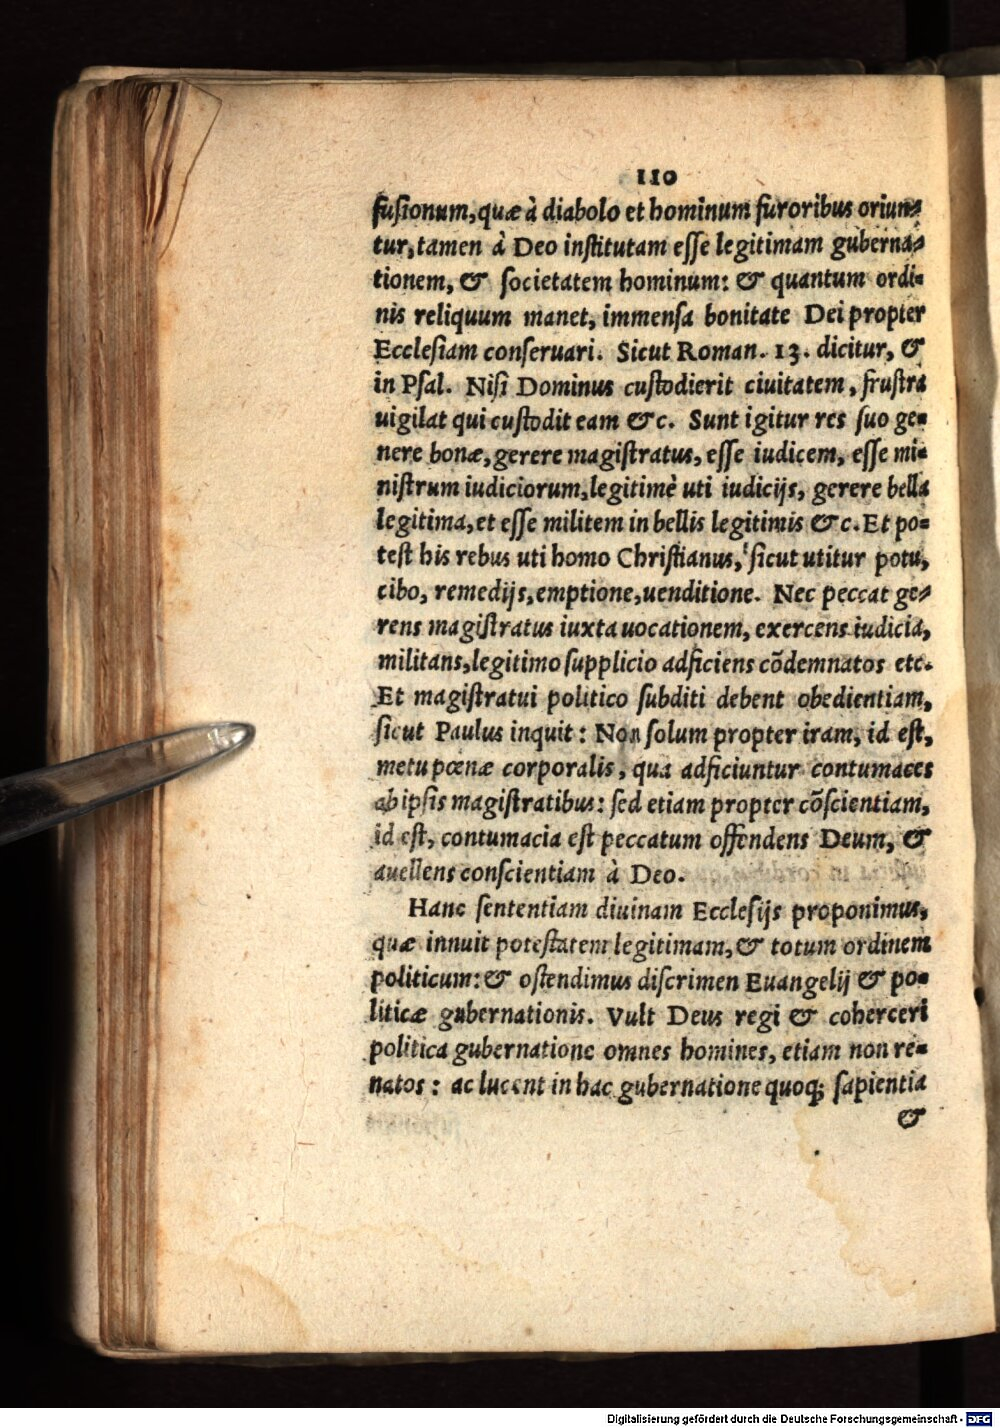 110
fuſionum, quæ à diabolo et hominum furoribus oriun⸗
tur, tamen à Deo inſtitutam eſſe legitimam guberna⸗
tionem, & ſocietatem hominum: & quantum ordi⸗
nis reliquum manet, immenſa bonitate Dei propter
Eccleſiam conſeruari. Sicut Roman. 13. dicitur, &
in Pſal. Niſi Dominus cuſtodierit ciuitatem, fruſtra
uigilat qui cuſtodit eam &c. Sunt igitur res ſuo ge⸗
nere bonæ, gerere magiſtratus, eſſe iudicem, eſſe mi⸗
niſtrum iudiciorum, legitimè uti iudicijs, gerere bella
legitima, et eſſe militem in bellis legitimis &c. Et po⸗
teſt his rebus uti homo Chriſtianus, ſicut utitur potu,
cibo, remedijs, emptione, uenditione. Nec peccat ge⸗
rens magiſtratus iuxta uocationem, exercens iudicia,
militans, legitimo ſupplicio adficiens cõdemnatos etc.
Et magiſtratui politico ſubditi debent obedientiam,
ſicut Paulus inquit: Non ſolum propter iram, id eſt,
metu pœnæ corporalis, qua adficiuntur contumaces
ab ipſis magiſtratibus: ſed etiam propter cõſcientiam,
id eſt, contumacia eſt peccatum offendens Deum, &
auellens conſcientiam à Deo.
Hanc ſententiam diuinam Eccleſijs proponimus,
quæ innuit poteſtatem legitimam, & totum ordinem
politicum: & oſtendimus diſcrimen Euangelij & po⸗
liticæ gubernationis. Vult Deus regi & coherceri
politica gubernatione omnes homines, etiam non re⸗
natos: ac lucent in hac gubernatione quoq; ſapientia
&
Digitalisierung gefördert durch die Deutsche Forschungsgemeinschaft - DFG